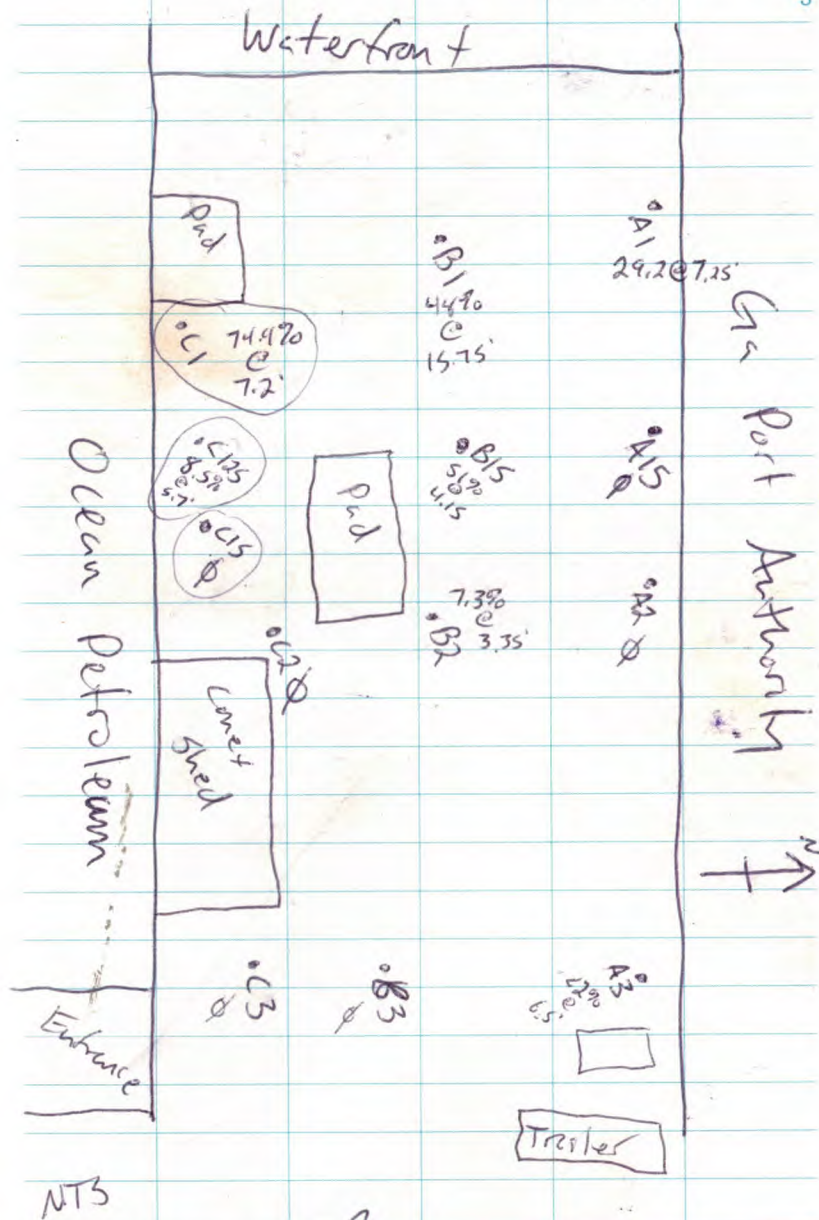 Waterfront
Pad
A1
29.2@7.25'
B1
44%
@
15.75
C1
74.4%
@
7.2'
Ga Port Authority
Ocean Petroleum
C125
8.5%
@
5.7'
B15
51%
@
4.15
A15
Ø
Pad
C15
Ø
A2
Ø
7.3%
@
B2 3.35'
C2 Ø
Shed
N
C3
Ø
B3
Ø
A3
@
6.5'
Entrance
Trailer
NTS